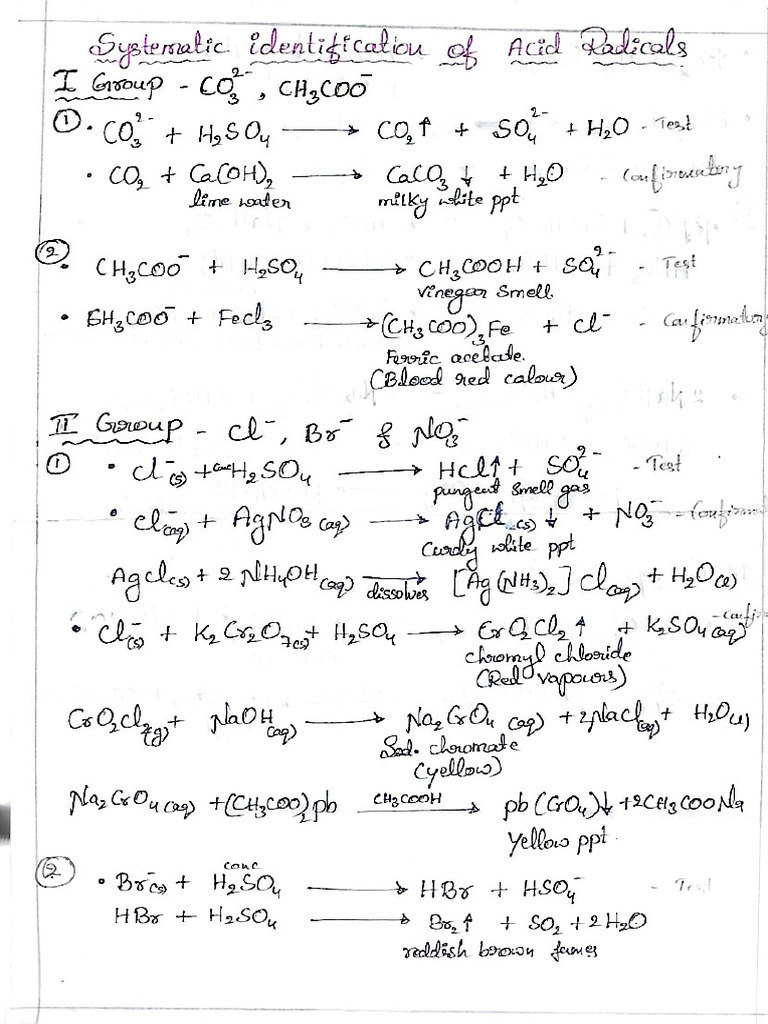 Systematic identification of Acid Radicals
I Group - CO₃²⁻, CH₃COO⁻
① • CO₃²⁻ + H₂SO₄ ⟶ CO₂↑ + SO₄²⁻ + H₂O - Test
• CO₂ + Ca(OH)₂ ⟶ CaCO₃↓ + H₂O - Confirmatory
lime water milky white ppt
② • CH₃COO⁻ + H₂SO₄ ⟶ CH₃COOH + SO₄²⁻ - Test
vinegar smell.
• CH₃COO⁻ + FeCl₃ ⟶ (CH₃COO)₃Fe + Cl⁻ - Confirmatory
Ferric acetate.
(Blood red calour)
II Group - Cl⁻, Br⁻ & NO₃⁻
① • Cl⁻(s) + conc H₂SO₄ ⟶ HCl↑ + SO₄²⁻ - Test
pungent smell gas
• Cl⁻(aq) + AgNO₃(aq) ⟶ AgCl(s)↓ + NO₃⁻ - Confirmat
Curdy white ppt
AgCl(s) + 2 NH₄OH(aq) ⟶ dissolves [Ag(NH₃)₂]Cl(aq) + H₂O(l)
• Cl⁻(s) + K₂Cr₂O₇(s) + H₂SO₄ ⟶ CrO₂Cl₂↑ + K₂SO₄(aq) - Confir
chromyl chloride
(Red vapours)
CrO₂Cl₂(g) + NaOH(aq) ⟶ Na₂CrO₄(aq) + 2NaCl(aq) + H₂O(l)
Sod. chromate
(yellow)
Na₂CrO₄(aq) + (CH₃COO)₂pb ⟶ CH₃COOH pb(CrO₄)↓ + 2CH₃COONa
Yellow ppt.
② • Br⁻(s) + conc H₂SO₄ ⟶ HBr + HSO₄⁻ - Test
HBr + H₂SO₄ ⟶ Br₂↑ + SO₂ + 2H₂O
reddish brown fumes